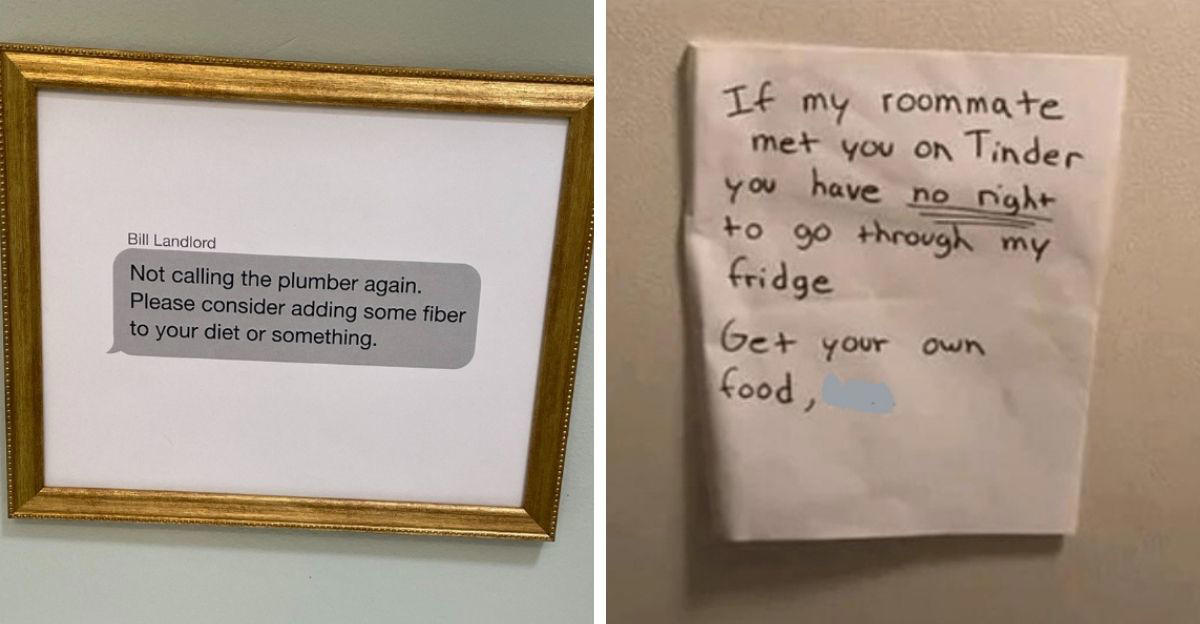 Bill Landlord
Not calling the plumber again.
Please consider adding some fiber
to your diet or something.
If my roommate
met you on Tinder
you have no right
to go through my
fridge
Get your own
food,